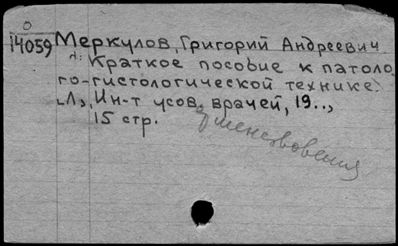 О
14059 Меркулов, Григорий Андреевич
Краткое пособие к патоло
го-гистологической технике.
Л., Ин-т усов. врачей, 19..,
15 стр.